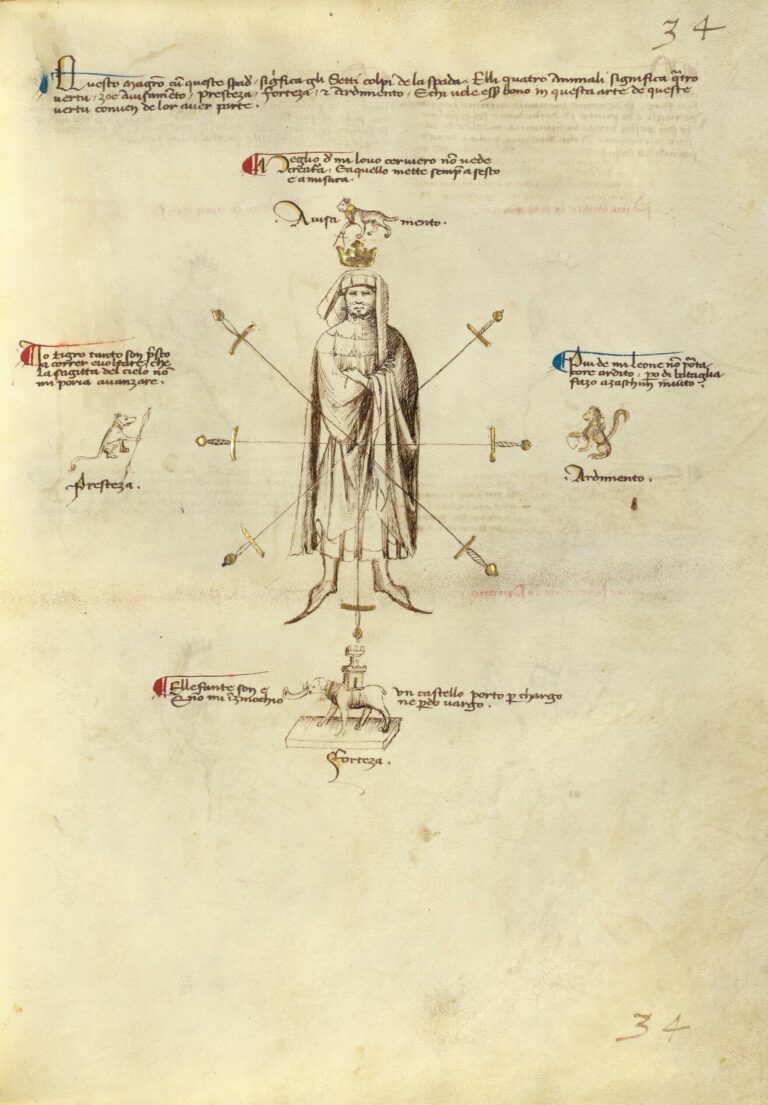 34
Questo Magro cu queste spad', sigfica gli Setti colpi de la spada. Elli quatro Animali significa qtro
vertu, zoe Avisamẽto, presteza, Forteza, ⁊ Ardimento, E chi vole ess bono in questa arte de queste
vertu conven de lor aver parte.
Meglio d' mi lovo cerviero nõ vede
creatura, E aquello mette semp a sesto
e a misura.
Avisa mento.
Io tigro tanto son psto
a correr e voltare, che
la sagitta del cielo nõ
mi poria avanzare.
Più de mi leone non porta
core ardito, po di bataglia
fazo a zaschun invito.
Presteza.
Ardimento.
Ellefante son e
un castello porto p chargo
E nõ mi inzinochio
ne pdo vargo.
Forteza.
34